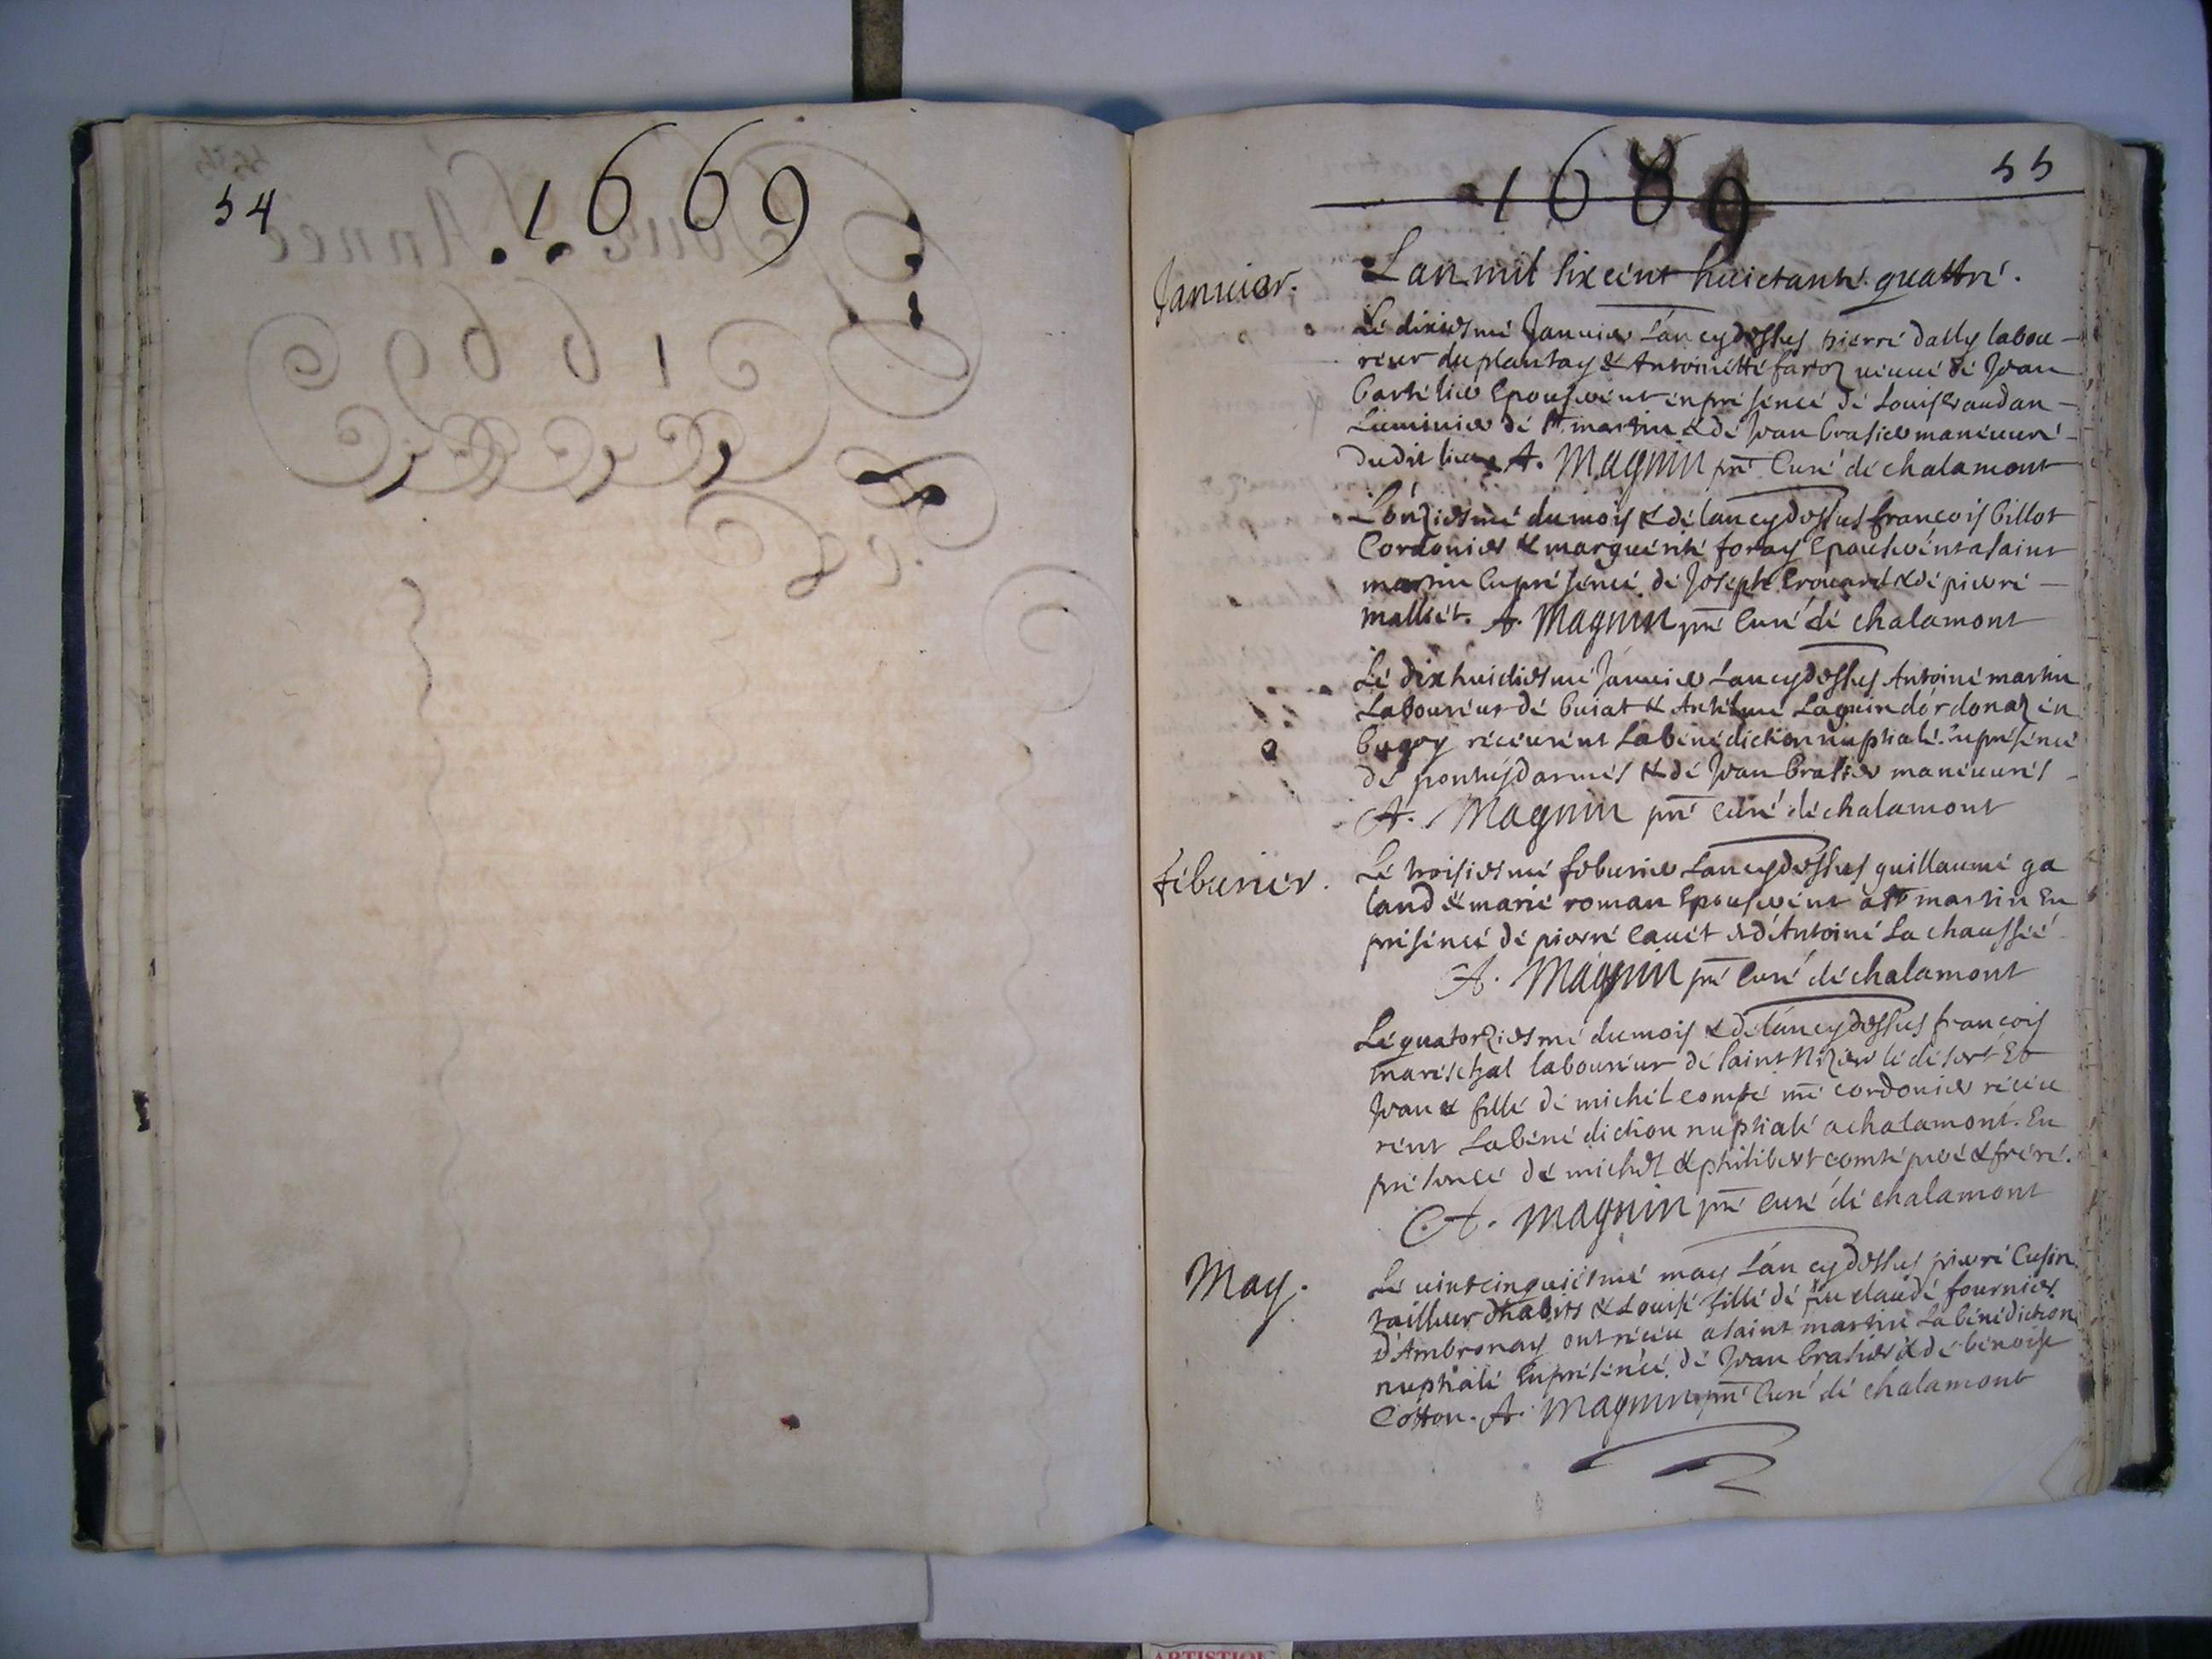 54
1669
1689
55
Januier.
Lan mil six cent huictante quattre.
Le dixiesme Januier Lan cydessus pierre dally labou-
reur du plantay & Antoinette faroz ueuue de Jean
Barthelier Epouserent en presence de Louis
de St martin & de Jean brasier maneuure
dudit lieu A. Magnin pre Curé de chalamont
L'onziesme du mois & de lan cydessus francois billot
Cordonier & marguerite foray Epouserent a saint
martin En presence de Joseph Erouard & de pierre
malliet. A. Magnin pre Curé de chalamont
Le dixhuictiesme Januier Lan cydessus Antoine martin
Laboureur de buiat & Anthelme Laguin dordonaz en
bugey receurent La benediction nuptiale. En presence
de & de Jean brasier maneuures
A. Magnin pre Curé de chalamont
feburier.
Le troisiesme feburier Lan cydessus guillaume ga
land & marie roman Epouserent a St martin En
presence de pierre Cauet & d'Antoine La chaussée
A. Magnin pre Curé de chalamont
Le quatorziesme du mois & de lan cydessus francois
mareschal laboureur de saint Nizier le desert Et
Jeane fille de michel comte me cordonier receu
rent La benediction nuptiale a chalamont. En
presence de michel & philibert comte pere & frere.
A. Magnin pre Curé de chalamont
May.
Le uintcinquiesme may Lan cydessus pierre Cusin
tailleur dhabits & Louise fille de feu claude fournier
d'Ambronay ont receu a saint martin La benediction
nuptiale En presence de Jean brasier & de benoist
Cotton. A. Magnin pre Curé de chalamont